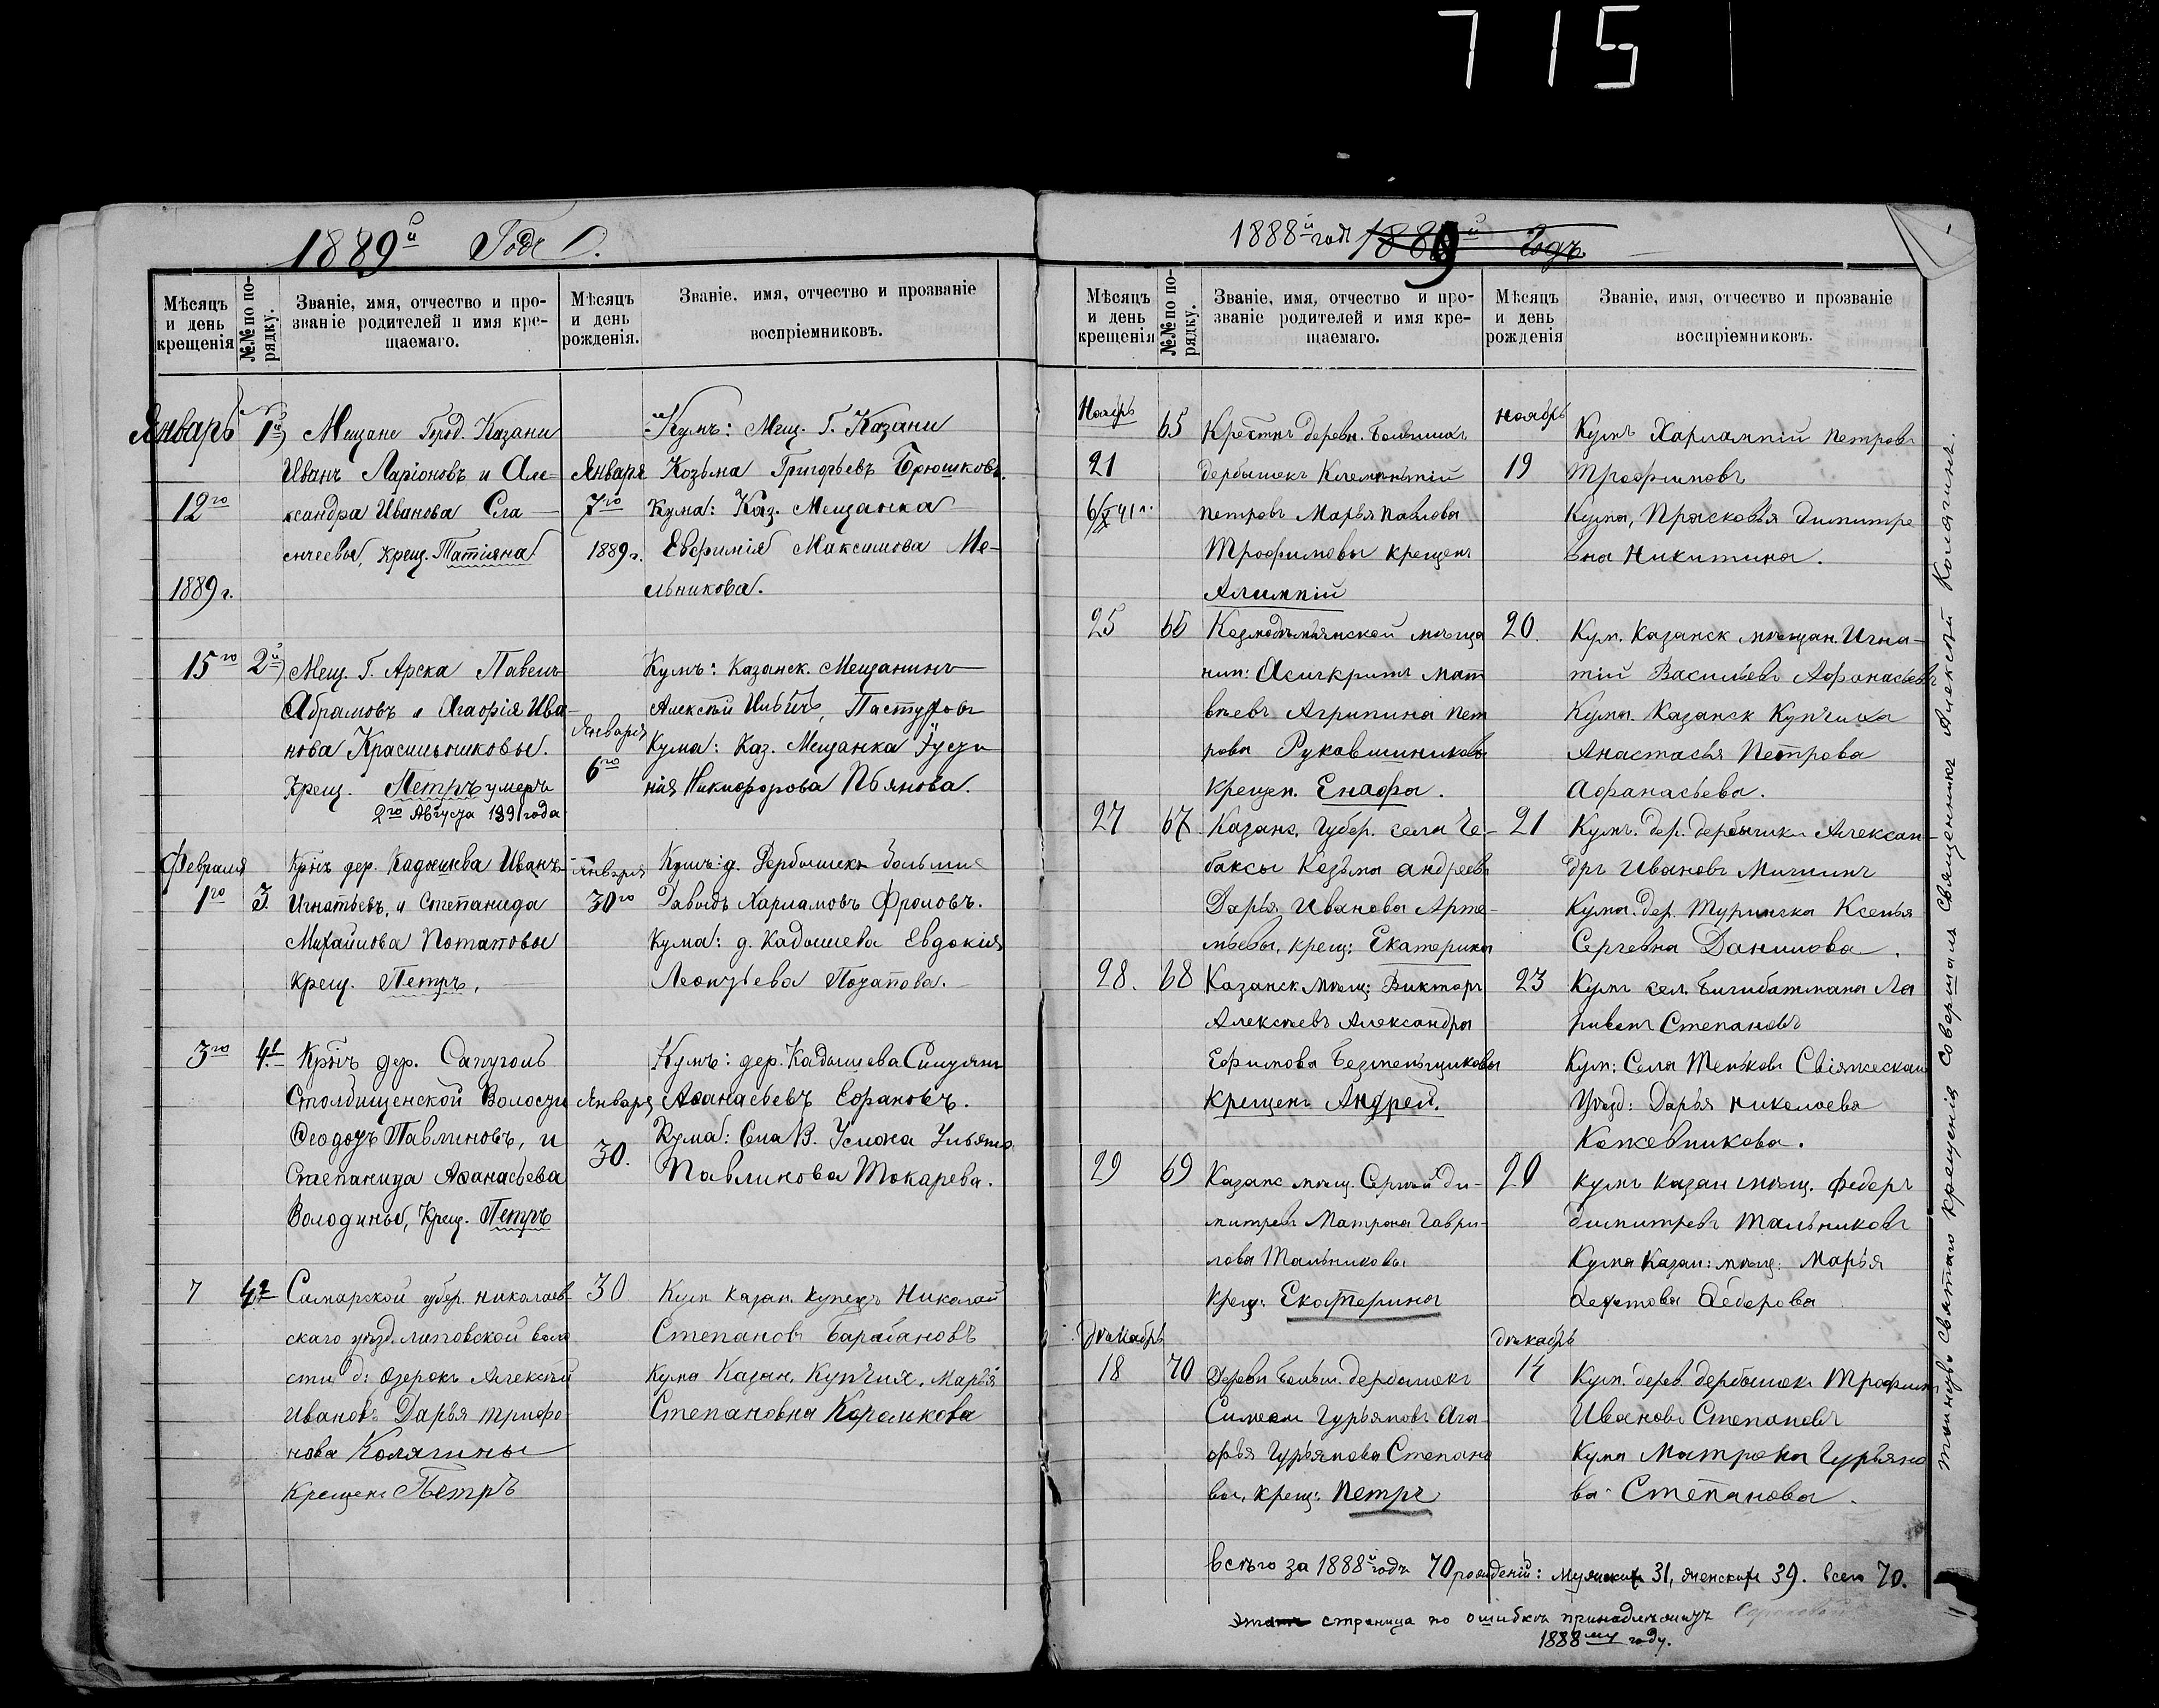 7 1 5
1889й Годъ.
Мѣсяцъ и день крещенія
№№ по порядку.
Званіе, имя, отчество и прозваніе родителей и имя крещаемаго.
Мѣсяцъ и день рожденія.
Званіе, имя, отчество и прозваніе воспріемниковъ.
Январь 1й) Мещане Город. Казани
Иванъ Ларіоновъ и Але-
12го ксандра Иванова
крещ. Татіяна
1889 г.
Января
7го
1889 г.
Кумъ: Мещ. Г. Казани
Козьма Григорьевъ Брюшковъ.
Кума: Каз. Мещанка
Евфимія Максимова Ме-
льникова.
15го 2й) Мещ. Г. Арска Павелъ
Абрамовъ и Агафія Ива-
нова Красильниковы.
Крещ. Петръ умеръ
2го Августа 1891 года
Января
6го
Кумъ: Казанск. Мещанинъ
Алексѣй Ильичъ, Пастуховъ
Кума: Каз. Мещанка
Никифорова Пьянова.
Февраля
1го 3. Крнъ дер. Кадышева Иванъ
Игнатьевъ, и Степанида
Михайлова Потаповы
крещ. Петръ,
Января
30го
Кумъ: д. Дербышекъ Большіе
Давыдъ Харламовъ Фроловъ.
Кума: д. Кадышева Евдокія
Леонтьева Потапова.
3го 4й Крнъ дер. Сапуголь
Столбищенской Волости
Ѳеодотъ Павлиновъ, и
Степанида Аѳанасьева
Володины, Крещ. Петръ
Января
30.
Кумъ: дер. Кадышева
Аѳанасьевъ
Кума:
Павлинова Токарева.
7 Самарской губер. Николаев-
скаго уѣзд. липовской воло
сти д: Озерокъ Алексѣй
Ивановъ Дарья Трифо-
нова Колягины
Крещенъ Петръ
30
Кум Казан. Купецъ Николай
Степановъ Барабановъ
Кума Казан. Купчих. Марья
Степановна Королькова
1888й годъ 1889й Годъ
Мѣсяцъ и день крещенія
№№ по порядку.
Званіе, имя, отчество и прозваніе родителей и имя крещаемаго.
Мѣсяцъ и день рожденія
Званіе, имя, отчество и прозваніе воспріемниковъ.
Ноябрь
21
65 Крестнъ деревн. Большихъ
дербышекъ Клементій
Петровъ Марья Павлова
Трофимовы крещенъ
Алимпій
ноябрь
19
Кумъ Харлампій Петровъ
Трофимовъ
Кума, Прасковья Димитре
вна Никитина.
25 66 Козмодемьянской мѣща
нин: Асигкритъ Мат
вѣевъ Агрипина Пет
рова Рукавишниковы
крещен. Енафа.
20.
Кум. Казанск мѣщан. Игна-
тій Васильевъ Афанасьевъ
Кума. Казанск Купчиха
Анастасья Петрова
Афанасьева.
27 67 Казанс, Губер. села Че-
баксы Козьма Андреевъ
Дарья Иванова Арте-
мьевы, крещ: Екатерина
21
Кумъ. дер. дербышки Алексан-
дръ Ивановъ Мишинъ
Кума. дер. Туринска Ксенья
Сергевна Данилова.
28. 68 Казанск. мѣщ: Викторъ
Алексѣевъ Александра
Ефимова Безменьщиковы
Крещенъ Андрей.
23
Кумъ сел. Бишбатмана Ла
ривонъ Степановъ
Кум: Села Теньков Свіяжскаго
Уѣзд: Дарья Николаева
Кожевникова.
29 69 Казанс мѣщ. Сергѣй Ди-
митрев Матрона Гаври-
лова Тальниковы
Крещ: Екатерина
20
Кумъ Казан мѣщ. Федоръ
Димитревъ Тальниковъ
Кума Казан: мѣщ: Марья
Федотова Федорова
Декабрь
18 70 Деревн Больш. дербышекъ
Симеон Гурьяновъ Ага
фья Гурьянова Степано
вы, крещ: Петръ
декабрь
14
Кум. дерев. дербышекъ Трофимъ
Ивановъ Степановъ
Кума Матрона Гурьяно
ва Степанова.
всѣго за 1888й годъ 70 рожденій: Мужскихъ 31, женскихъ 39. всего 70.
Эта страница по ошибкѣ принадлежитъ
1888му году.
Таинство святаго крещенія совершалъ священникъ Алексѣй Колягинъ.